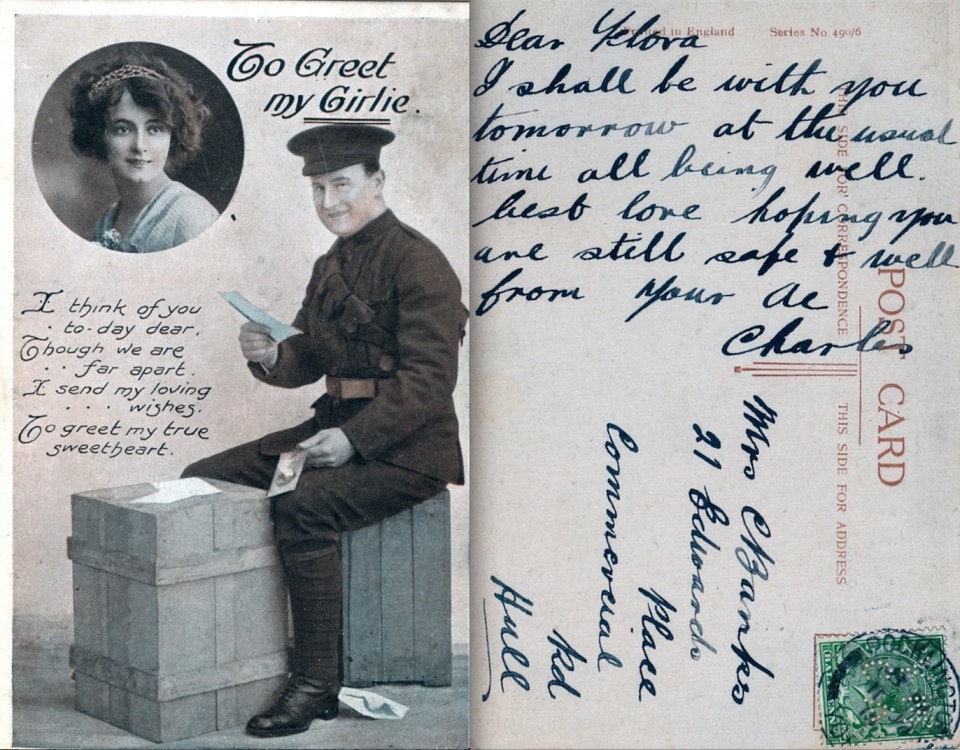 To Greet
my Girlie.
I think of you
. to-day dear,
Though we are
. . far apart.
I send my loving
. . . wishes.
To greet my true
sweetheart.
Printed in England
Series No 490/6
Dear Flora
I shall be with you
tomorrow at the usual
time all being well.
best love hoping you
are still safe & well
from your
Charles
POST CARD
THIS SIDE FOR CORRESPONDENCE
THIS SIDE FOR ADDRESS
Mrs C Banks
21 Edwards
Place
Commercial
Rd
Hull